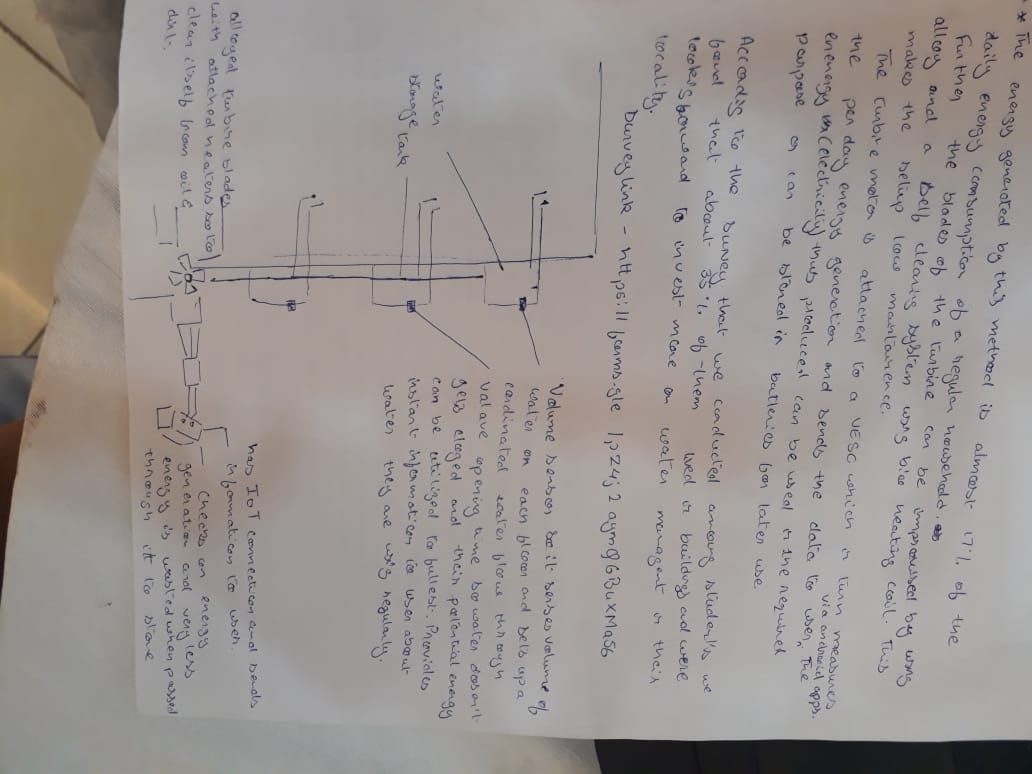 * The energy generated by this method is almost 17% of the
daily energy consumption of a regular household.
Further the blades of the turbine can be improvised by using
alloy and a self cleaning system using bice heating coil. This
makes the setup low maintainence.
The turbine motor is attached to a VESC which in turn measures
the per day energy generation and sends the data to user via android apps. The
energy (electricity) thus produced can be used in the required
purpose or can be stored in batteries for later use
According to the survey that we conducted among students we
found that about 35% of them lived in buildings and were
looking forward to invest more on water managent in their
locality.
Survey link - https://forms.gle/pZ4j2aym9GBuxMaS6
water
storage tank
Volume sensor so it senses volume of
water on each floor and sets up a
cordinated water flow through
valave opening time so water doesn't
gets cloged and their potential energy
can be utilized to fullest. Provides
instant information to user about
water they are using regularly.
alloyed turbine blades
with attached heaters so to
clean itself from oils &
dirt.
has IoT connection and sends
information to user.
Checks on energy
generation and very less
energy is wasted when passed
through it to store